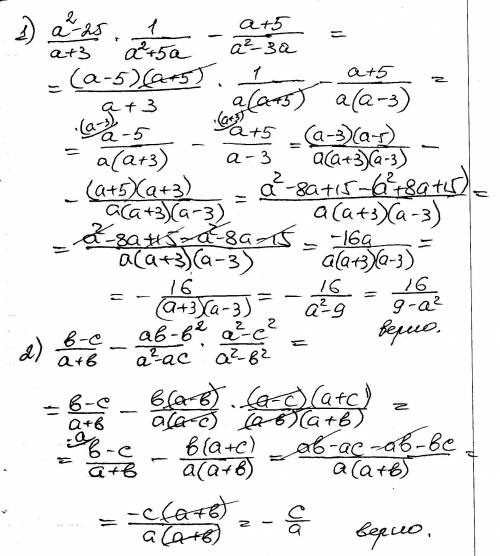 1) (a²-25)/(a+3) · 1/(a²+5a) - (a+5)/(a²-3a) =
= (a-5)(a+5)/(a+3) · 1/(a(a+5)) - (a+5)/(a(a-3)) =
= ·(a-3) (a-5)/(a(a+3)) - ·(a+3) (a+5)/(a-3) = (a-3)(a-5)/(a(a+3)(a-3)) -
- (a+5)(a+3)/(a(a+3)(a-3)) = (a²-8a+15-(a²+8a+15))/(a(a+3)(a-3)) =
= (a²-8a+15-a²-8a-15)/(a(a+3)(a-3)) = -16a/(a(a+3)(a-3)) =
= - 16/((a+3)(a-3)) = - 16/(a²-9) = 16/(9-a²)
верно.
2) (в-c)/(a+в) - (aв-в²)/(a²-ac) · (a²-c²)/(a²-в²) =
= (в-c)/(a+в) - в(a-в)/(a(a-c)) · (a-c)(a+c)/((a-в)(a+в)) =
= ·a (в-c)/(a+в) - в(a+c)/(a(a+в)) = (aв-ac-aв-вc)/(a(a+в)) =
= -c(a+в)/(a(a+в)) = - c/a верно.